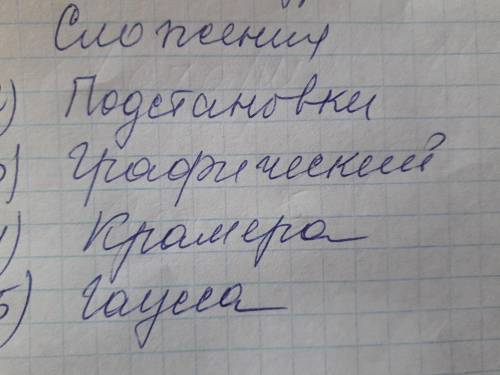 Сложения
) Подстановки
) Графический
) Крамера
5) Гаусса